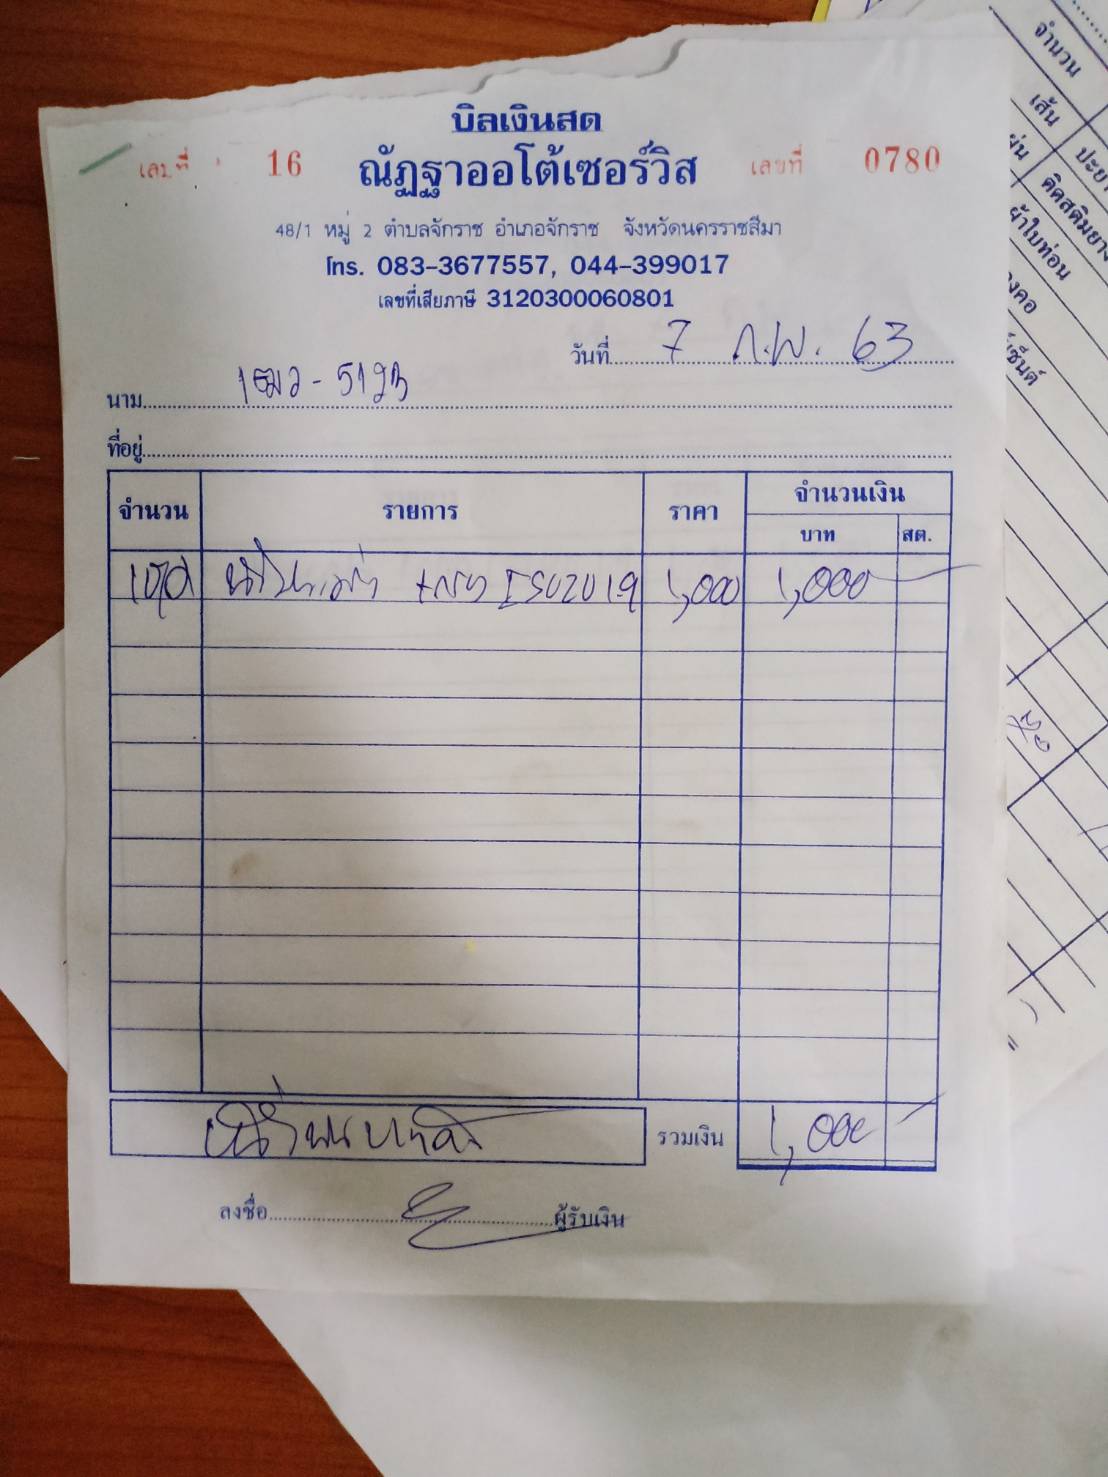 บิลเงินสด
เล่มที่ 16 ณัฏฐาออโต้เซอร์วิส เลขที่ 0780
48/1 หมู่ 2 ตำบลจักราช อำเภอจักราช จังหวัดนครราชสีมา
โทร. 083-3677557, 044-399017
เลขที่เสียภาษี 3120300060801
วันที่ 7 ก.พ. 63
นาม
ที่อยู่
จำนวน รายการ ราคา จำนวนเงิน
บาท สต.
1 ชุด ISUZU 1,000 1,000
หนึ่งพันบาทถ้วน รวมเงิน 1,000
ลงชื่อ ผู้รับเงิน
จำนวน
เส้น
ปะยาง
ผ้าใบท่อน